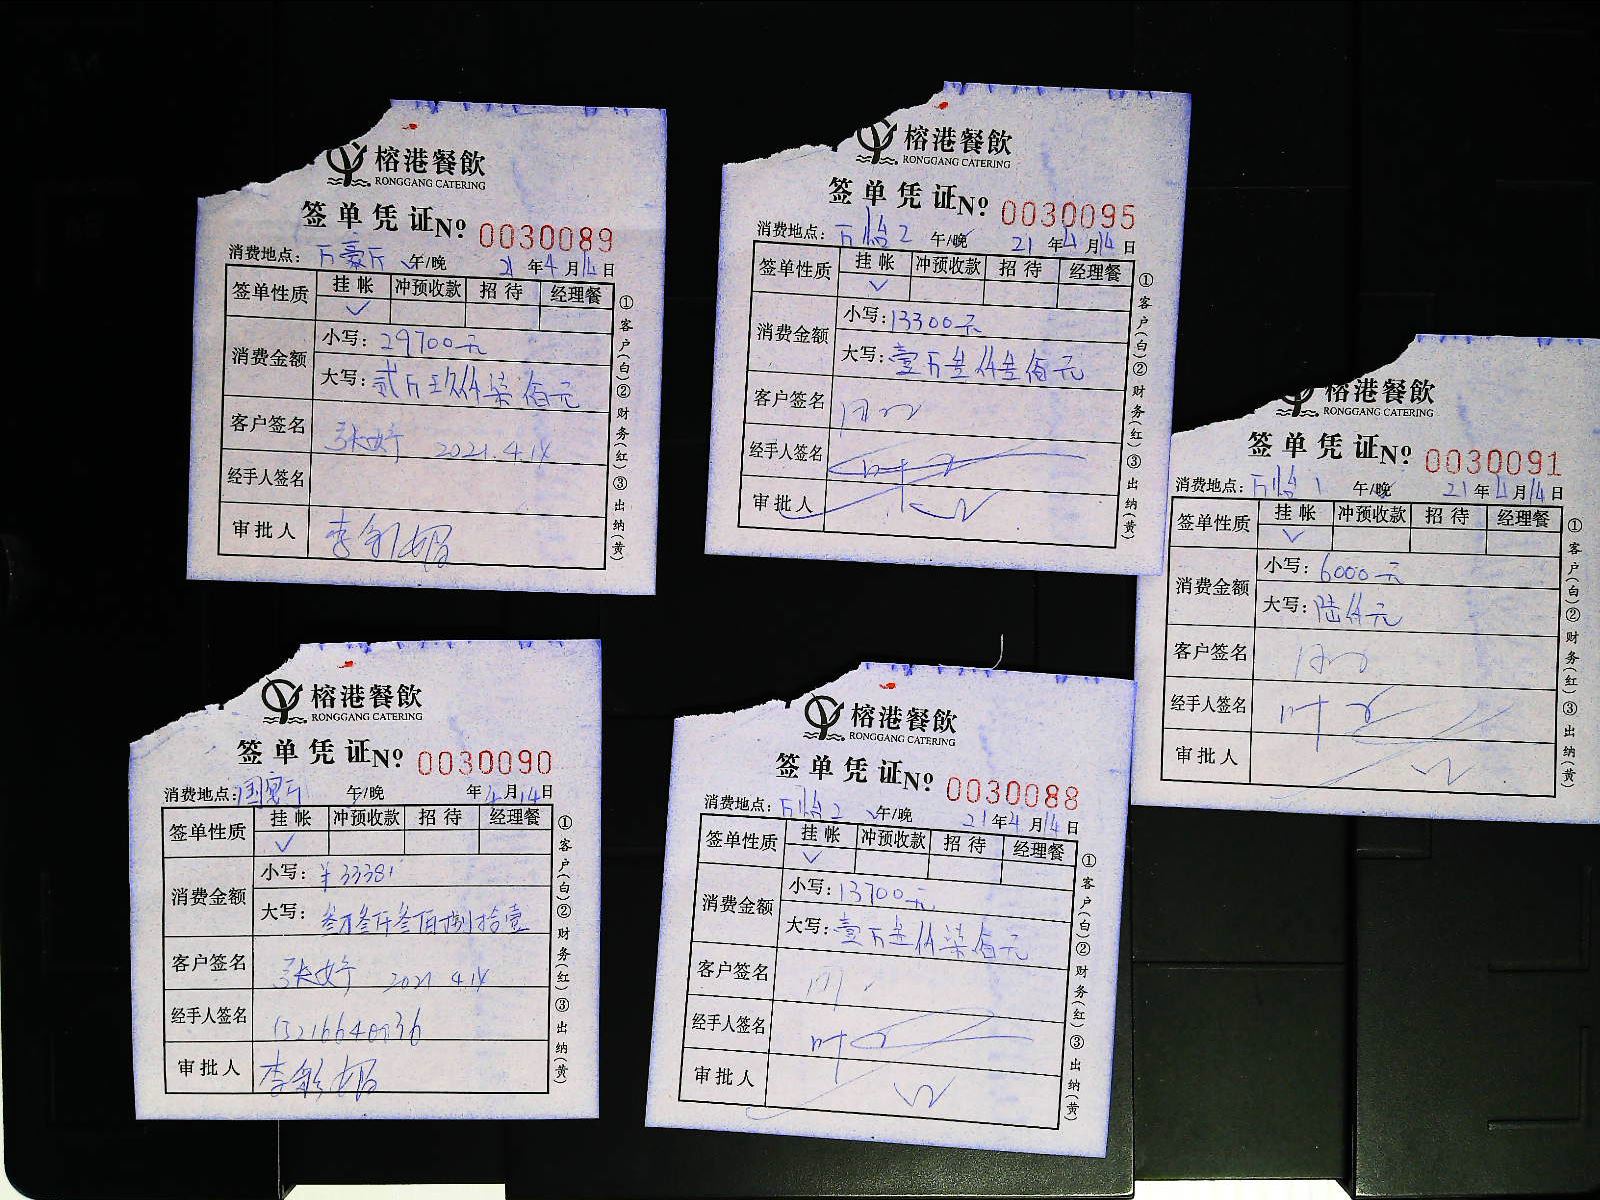 榕港餐飲
RONGGANG CATERING
签单凭证 Nº 0030089
消费地点: 万豪厅 午/晚 21年4月14日
签单性质 挂帐 冲预收款 招待 经理餐
✓
消费金额 小写: 29700元
大写: 贰万玖仟柒佰元
客户签名 张婷 2021.4.14
经手人签名
审批人
①客户(白)②财务(红)③出纳(黄)
榕港餐飲
RONGGANG CATERING
签单凭证 Nº 0030095
消费地点: 万怡2 午/晚 21年4月14日
签单性质 挂帐 冲预收款 招待 经理餐
✓
消费金额 小写: 13300元
大写: 壹万叁仟叁佰元
客户签名
经手人签名
审批人
①客户(白)②财务(红)③出纳(黄)
榕港餐飲
RONGGANG CATERING
签单凭证 Nº 0030091
消费地点: 万怡1 午/晚 21年4月14日
签单性质 挂帐 冲预收款 招待 经理餐
✓
消费金额 小写: 6000元
大写: 陆仟元
客户签名
经手人签名
审批人
①客户(白)②财务(红)③出纳(黄)
榕港餐飲
RONGGANG CATERING
签单凭证 Nº 0030090
消费地点: 国宴厅 午/晚 年4月14日
签单性质 挂帐 冲预收款 招待 经理餐
✓
消费金额 小写: ¥33381
大写: 叁万叁仟叁佰捌拾壹
客户签名 张婷 2021 4.14
经手人签名
审批人
①客户(白)②财务(红)③出纳(黄)
榕港餐飲
RONGGANG CATERING
签单凭证 Nº 0030088
消费地点: 万怡2 午/晚 21年4月14日
签单性质 挂帐 冲预收款 招待 经理餐
✓
消费金额 小写: 13700元
大写: 壹万叁仟柒佰元
客户签名
经手人签名
审批人
①客户(白)②财务(红)③出纳(黄)